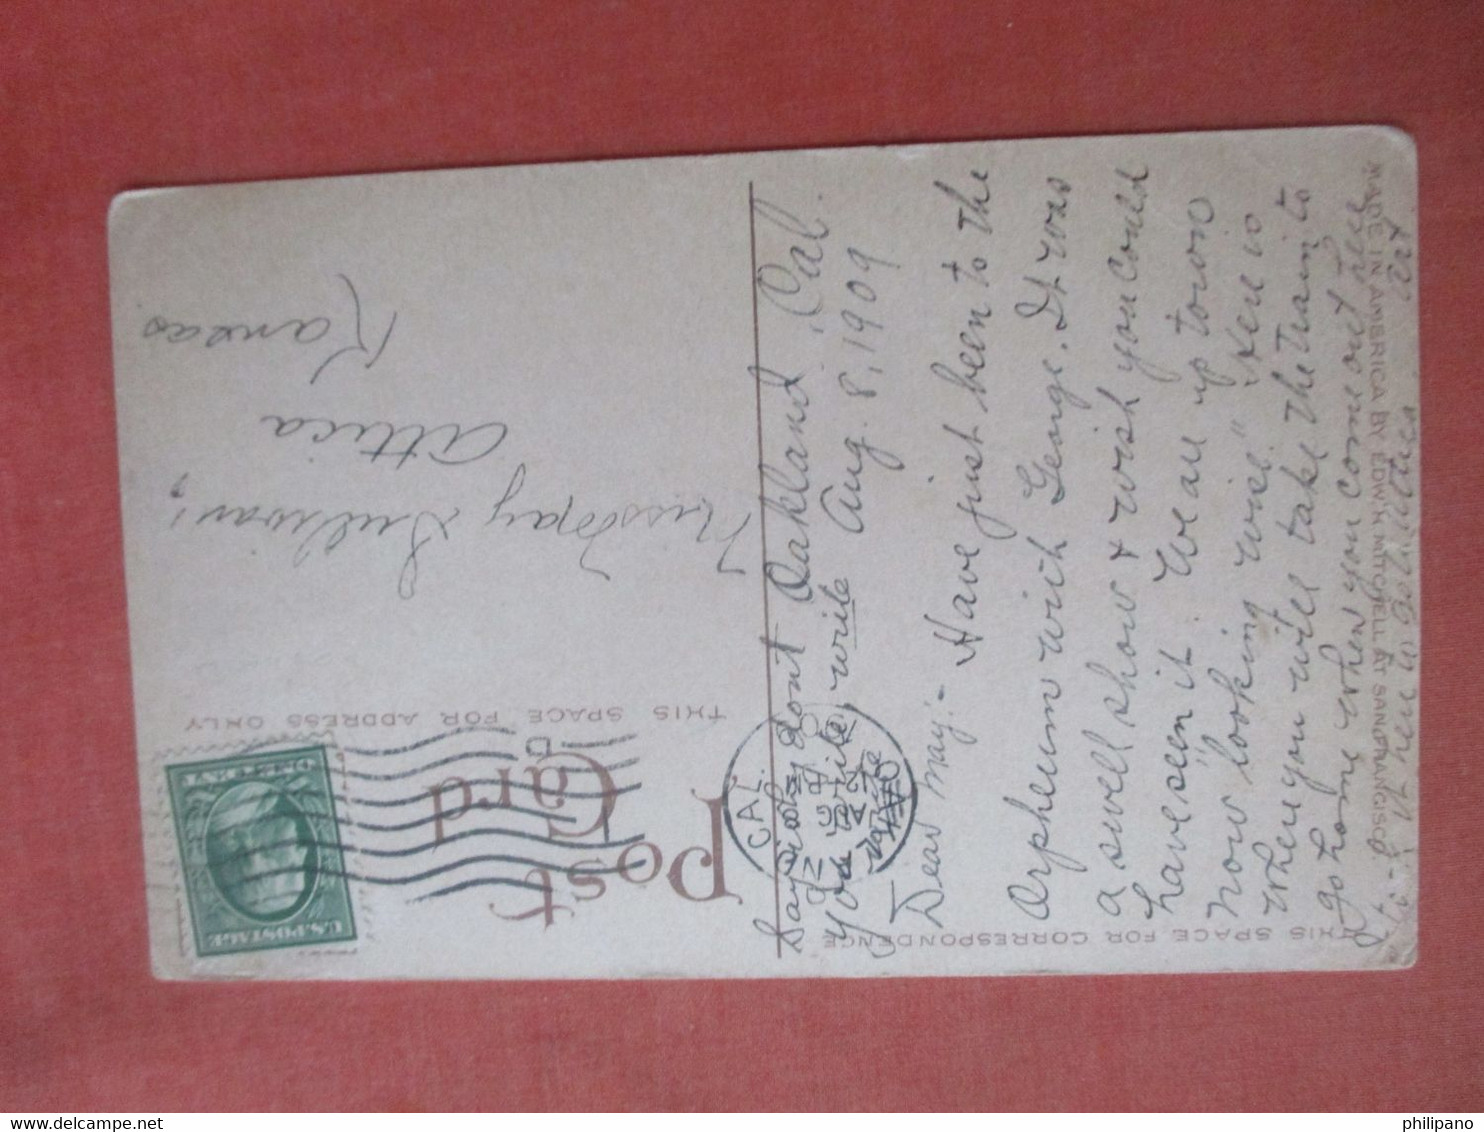 Post
Card
THIS SPACE FOR ADDRESS ONLY
U.S. POSTAGE
ONE CENT
Miss May Sullivan,
Attica
Kansas
CAL.
THIS SPACE FOR CORRESPONDENCE
MADE IN AMERICA BY EDW'D H. MITCHELL AT SAN FRANCISCO
Oakland, Cal.
Aug. 8, 1909
Say why dont
you write, write
Dear May:- Have just been to the
Orpheum with George. It was
a swell show & wish you could
have seen it. We are up town
now "looking wise." Here is
where you will take the train to
go home when you come out here
philipano